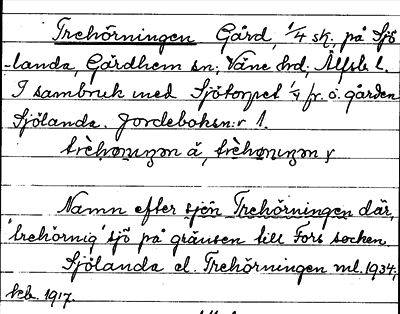 Trehörningen Gård, 1/4 skj, på Sjö
-landa, Gärdhem sn, Väne hd, Älfsb. l.
I sambruk med Sjötorpet 1/4 fr. o. gården
Sjölanda. Jordeboksn:r 1.
Namn efter sjön Trehörningen där,
'trehörnig' sjö på gränsen till Fors socken.
Sjölanda el. Trehörningen ml. 1934,
keb. 1917.